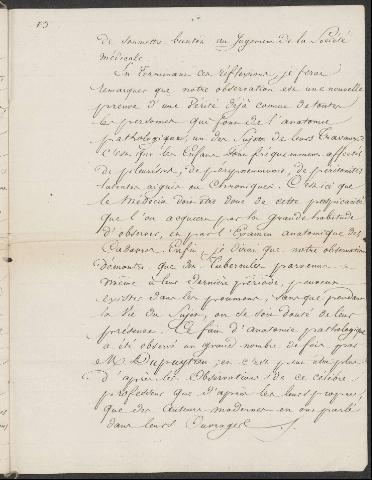 13
de soumettre bientôt au Jugement de la Société
médicale.
En Terminant ces réflexions, je ferai
remarquer que notre observation est une nouvelle
preuve d'une vérité déjà connue de toutes
les personnes qui font de l'anatomie
pathologique, un des sujets de leurs travaux
c'est que les Enfans sont fréquemment affectés
de pleurésies, de peripneumonies, de peritonites
latentes aigues ou Chroniques. C'est ici que
le Médecin doit être doué de cette perspicacité
que l'on acquiert par la grande habitude
d'observer, et par l'Examen anatomique des
Cadavres. Enfin, je dirai que notre observation
Démontre que des Tubercules parvenus
même à leur dernière période, peuvent
exister dans les poumons, sans que pendant
la vie du Sujet, on se soit douté de leur
présence. Ce fait d'anatomie pathologique
a été observé un grand nombre de fois par
M. Dupuytren, et c'est plus
d'après les Observations de ce célèbre
professeur que d'après les leurs propres,
que des auteurs modernes en ont parlé
dans leurs Ouvrages.